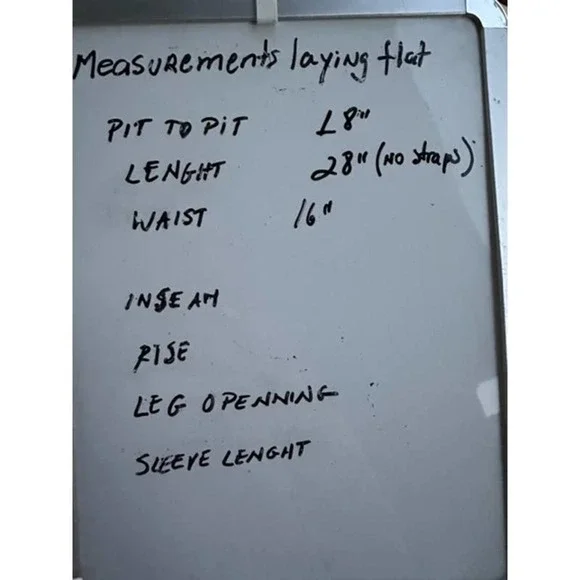 Measurements laying flat
PIT TO PIT 18"
LENGHT 28" (NO straps)
WAIST 16"
INSEAM
RISE
LEG OPENNING
SLEEVE LENGHT